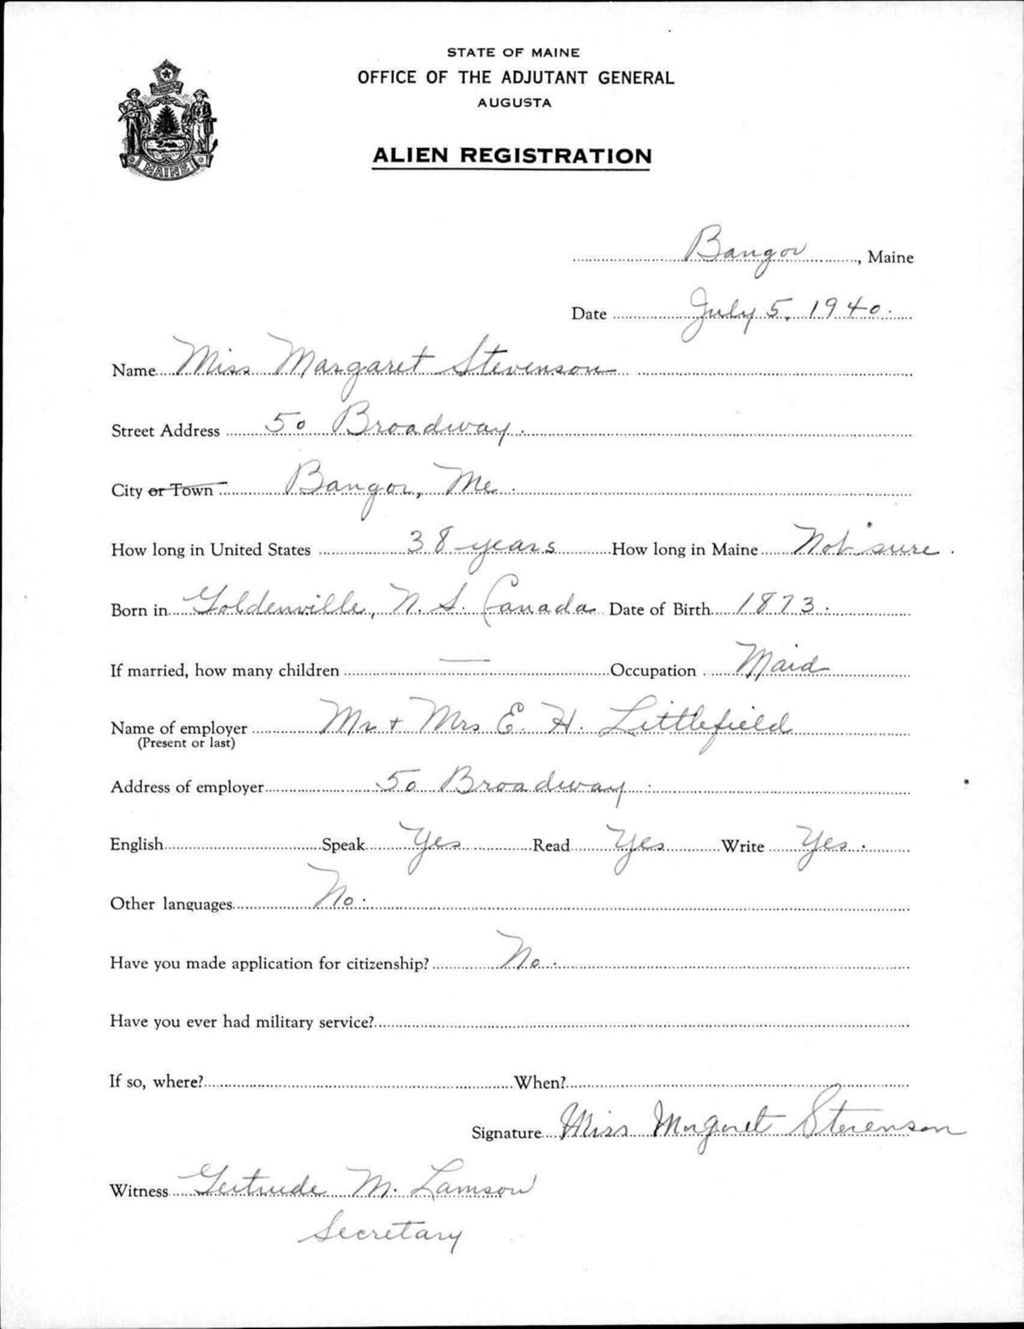 STATE OF MAINE
OFFICE OF THE ADJUTANT GENERAL
AUGUSTA
ALIEN REGISTRATION
MAINE
Bangor, Maine
Date July 5, 1940.
Name Miss Margaret Stevenson
Street Address 50 Broadway.
City or Town Bangor, Me.
How long in United States 38 years How long in Maine Not sure.
Born in Goldenville, N. S. Canada Date of Birth 1873.
If married, how many children — Occupation Maid
Name of employer Mr + Mrs E. H. Littlefield
(Present or last)
Address of employer 50 Broadway.
English Speak Yes Read Yes Write Yes.
Other languages No.
Have you made application for citizenship? No.
Have you ever had military service?
If so, where? When?
Signature Miss Margaret Stevenson
Witness Gertrude M. Lamson
Secretary